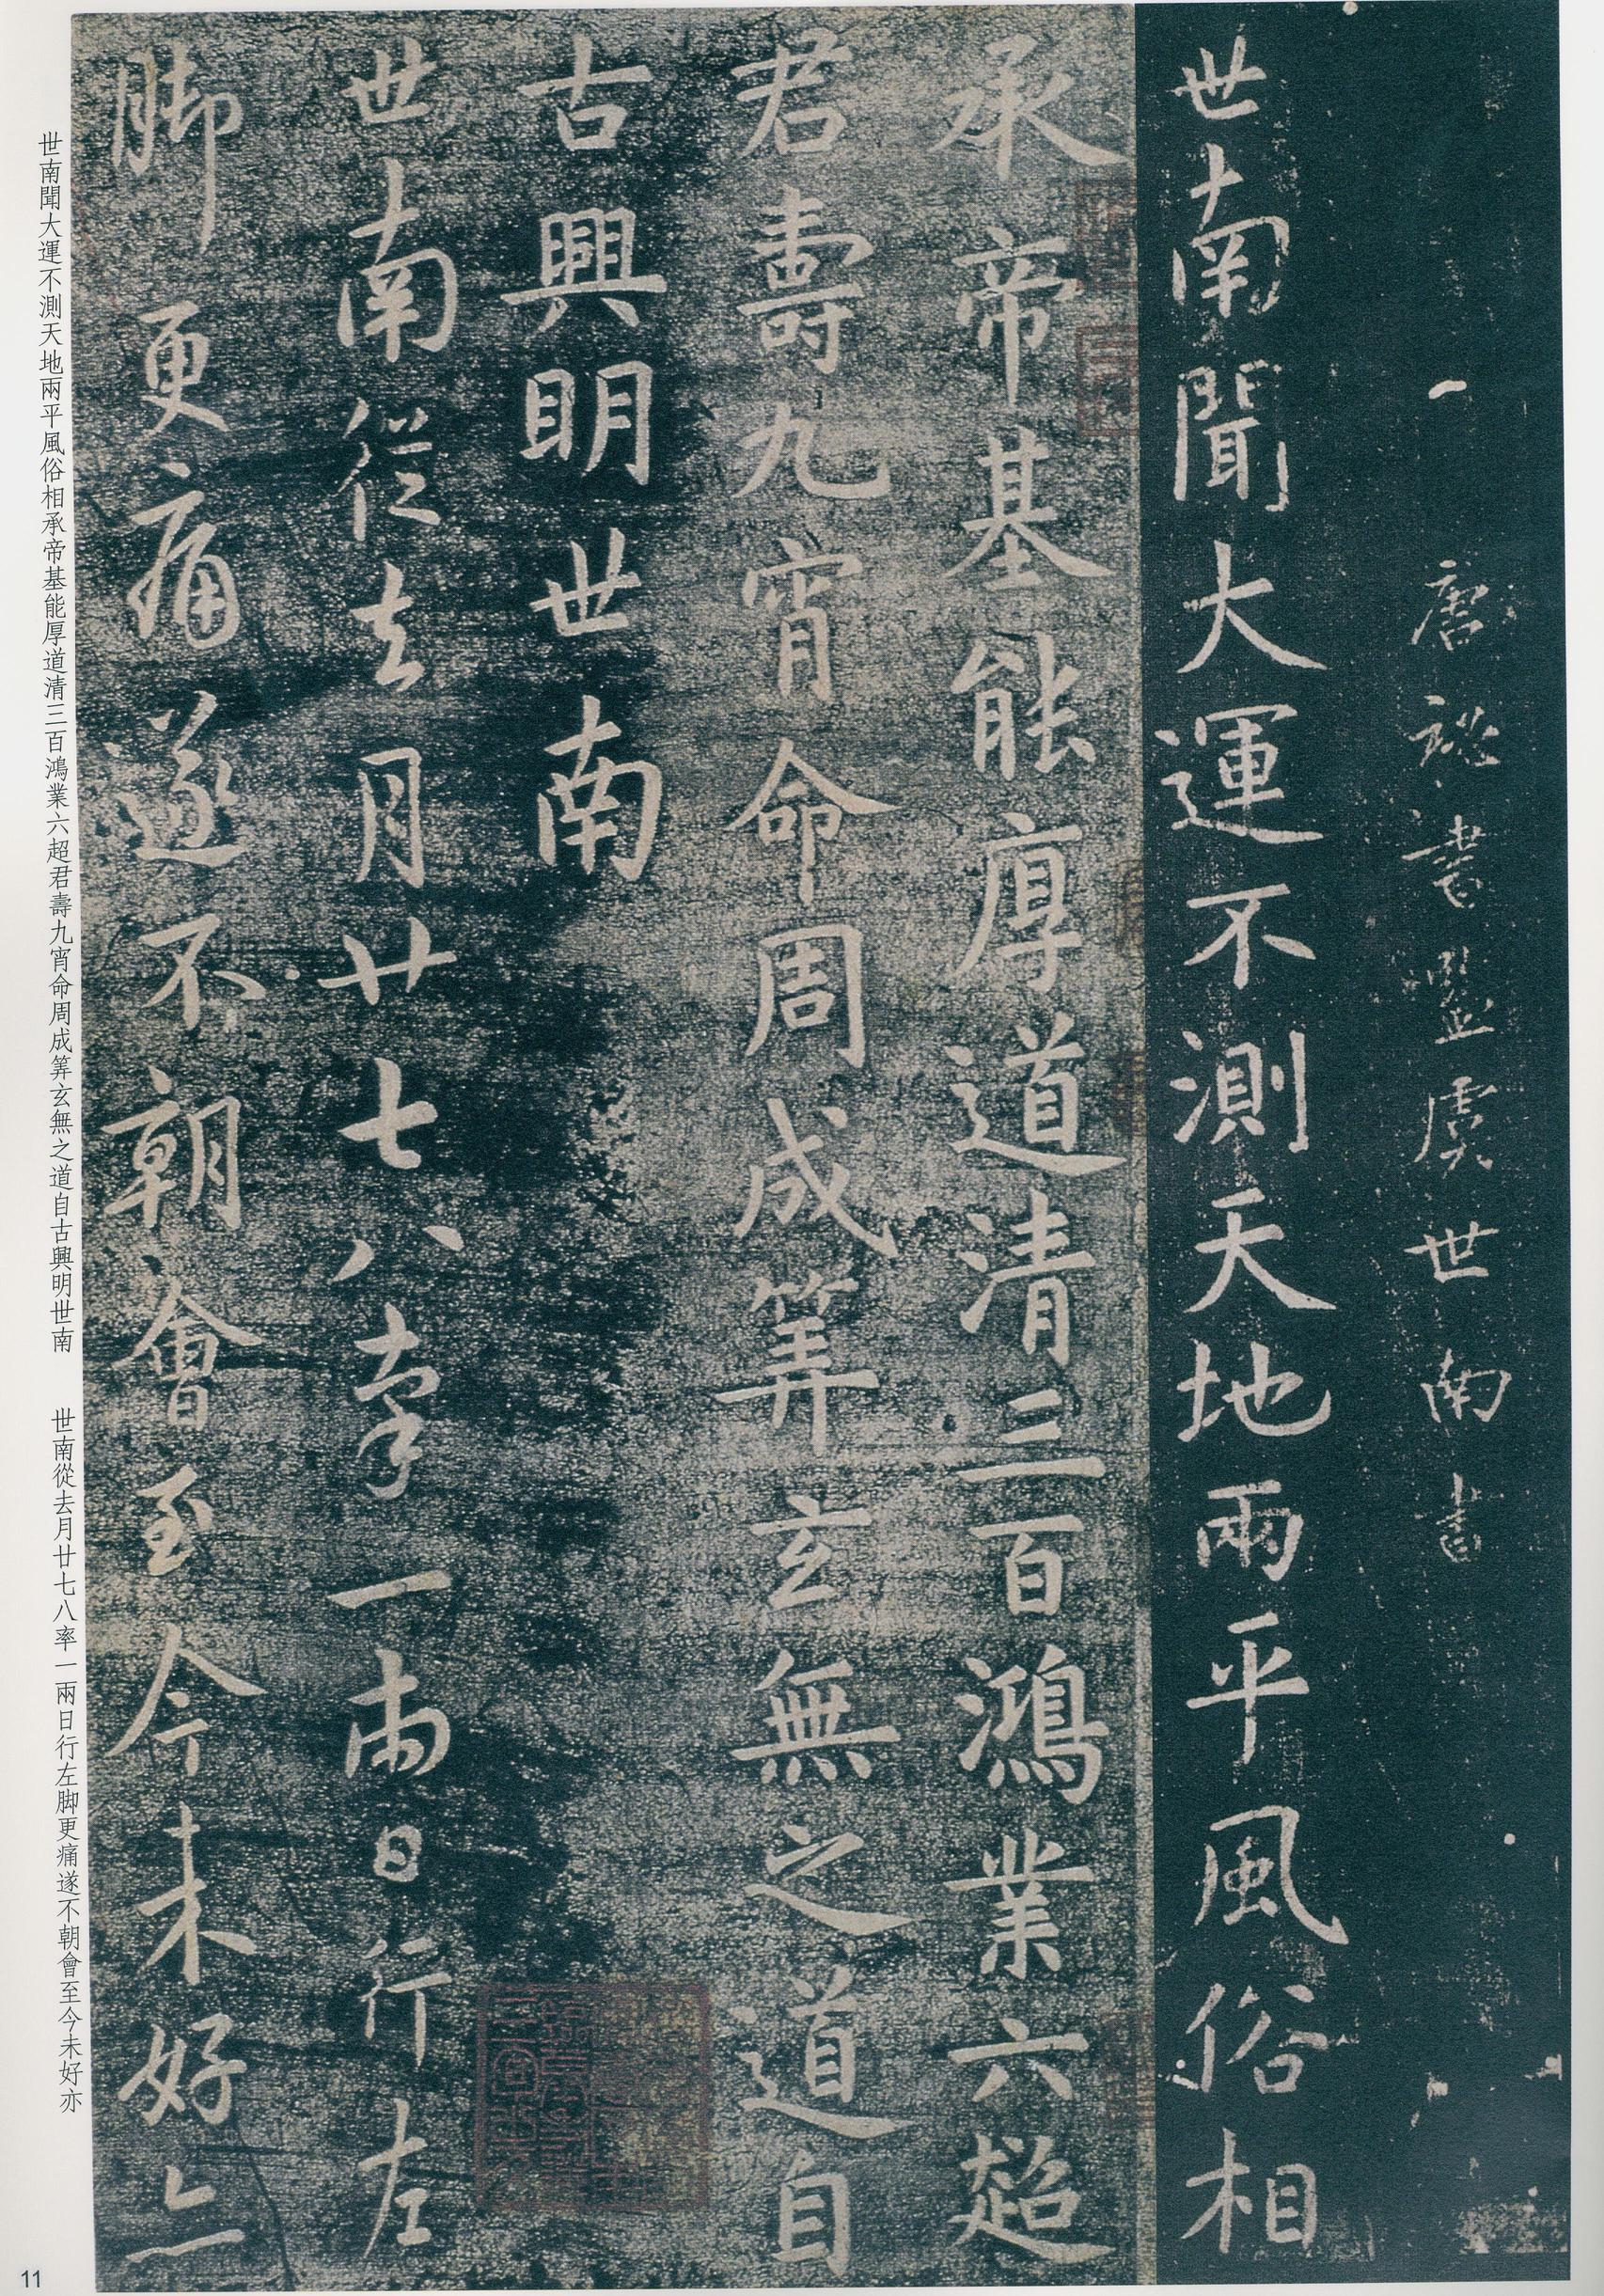 唐祕書監虞世南書
世南聞大運不測天地兩平風俗相
承帝基能厚道清三百鴻業六超
君壽九宵命周成筭玄無之道自
古興明世南
世南從去月廿七八率一兩日行左
脚更痛遂不朝會至今未好亦
世南聞大運不測天地兩平風俗相承帝基能厚道清三百鴻業六超君壽九宵命周成筭玄無之道自古興明世南　世南從去月廿七八率一兩日行左脚更痛遂不朝會至今未好亦
11